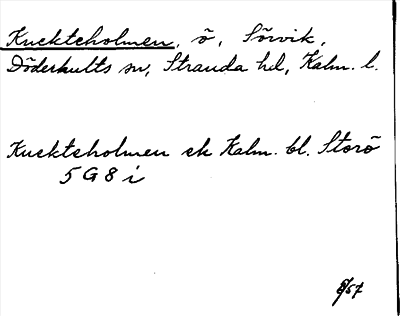 Knekteholmen, ö, Sörvik,
Döderhults sn, Stranda hd, Kalm. l.
Knekteholmen ek Kalm. bl. Storö
5 G 8 i
57